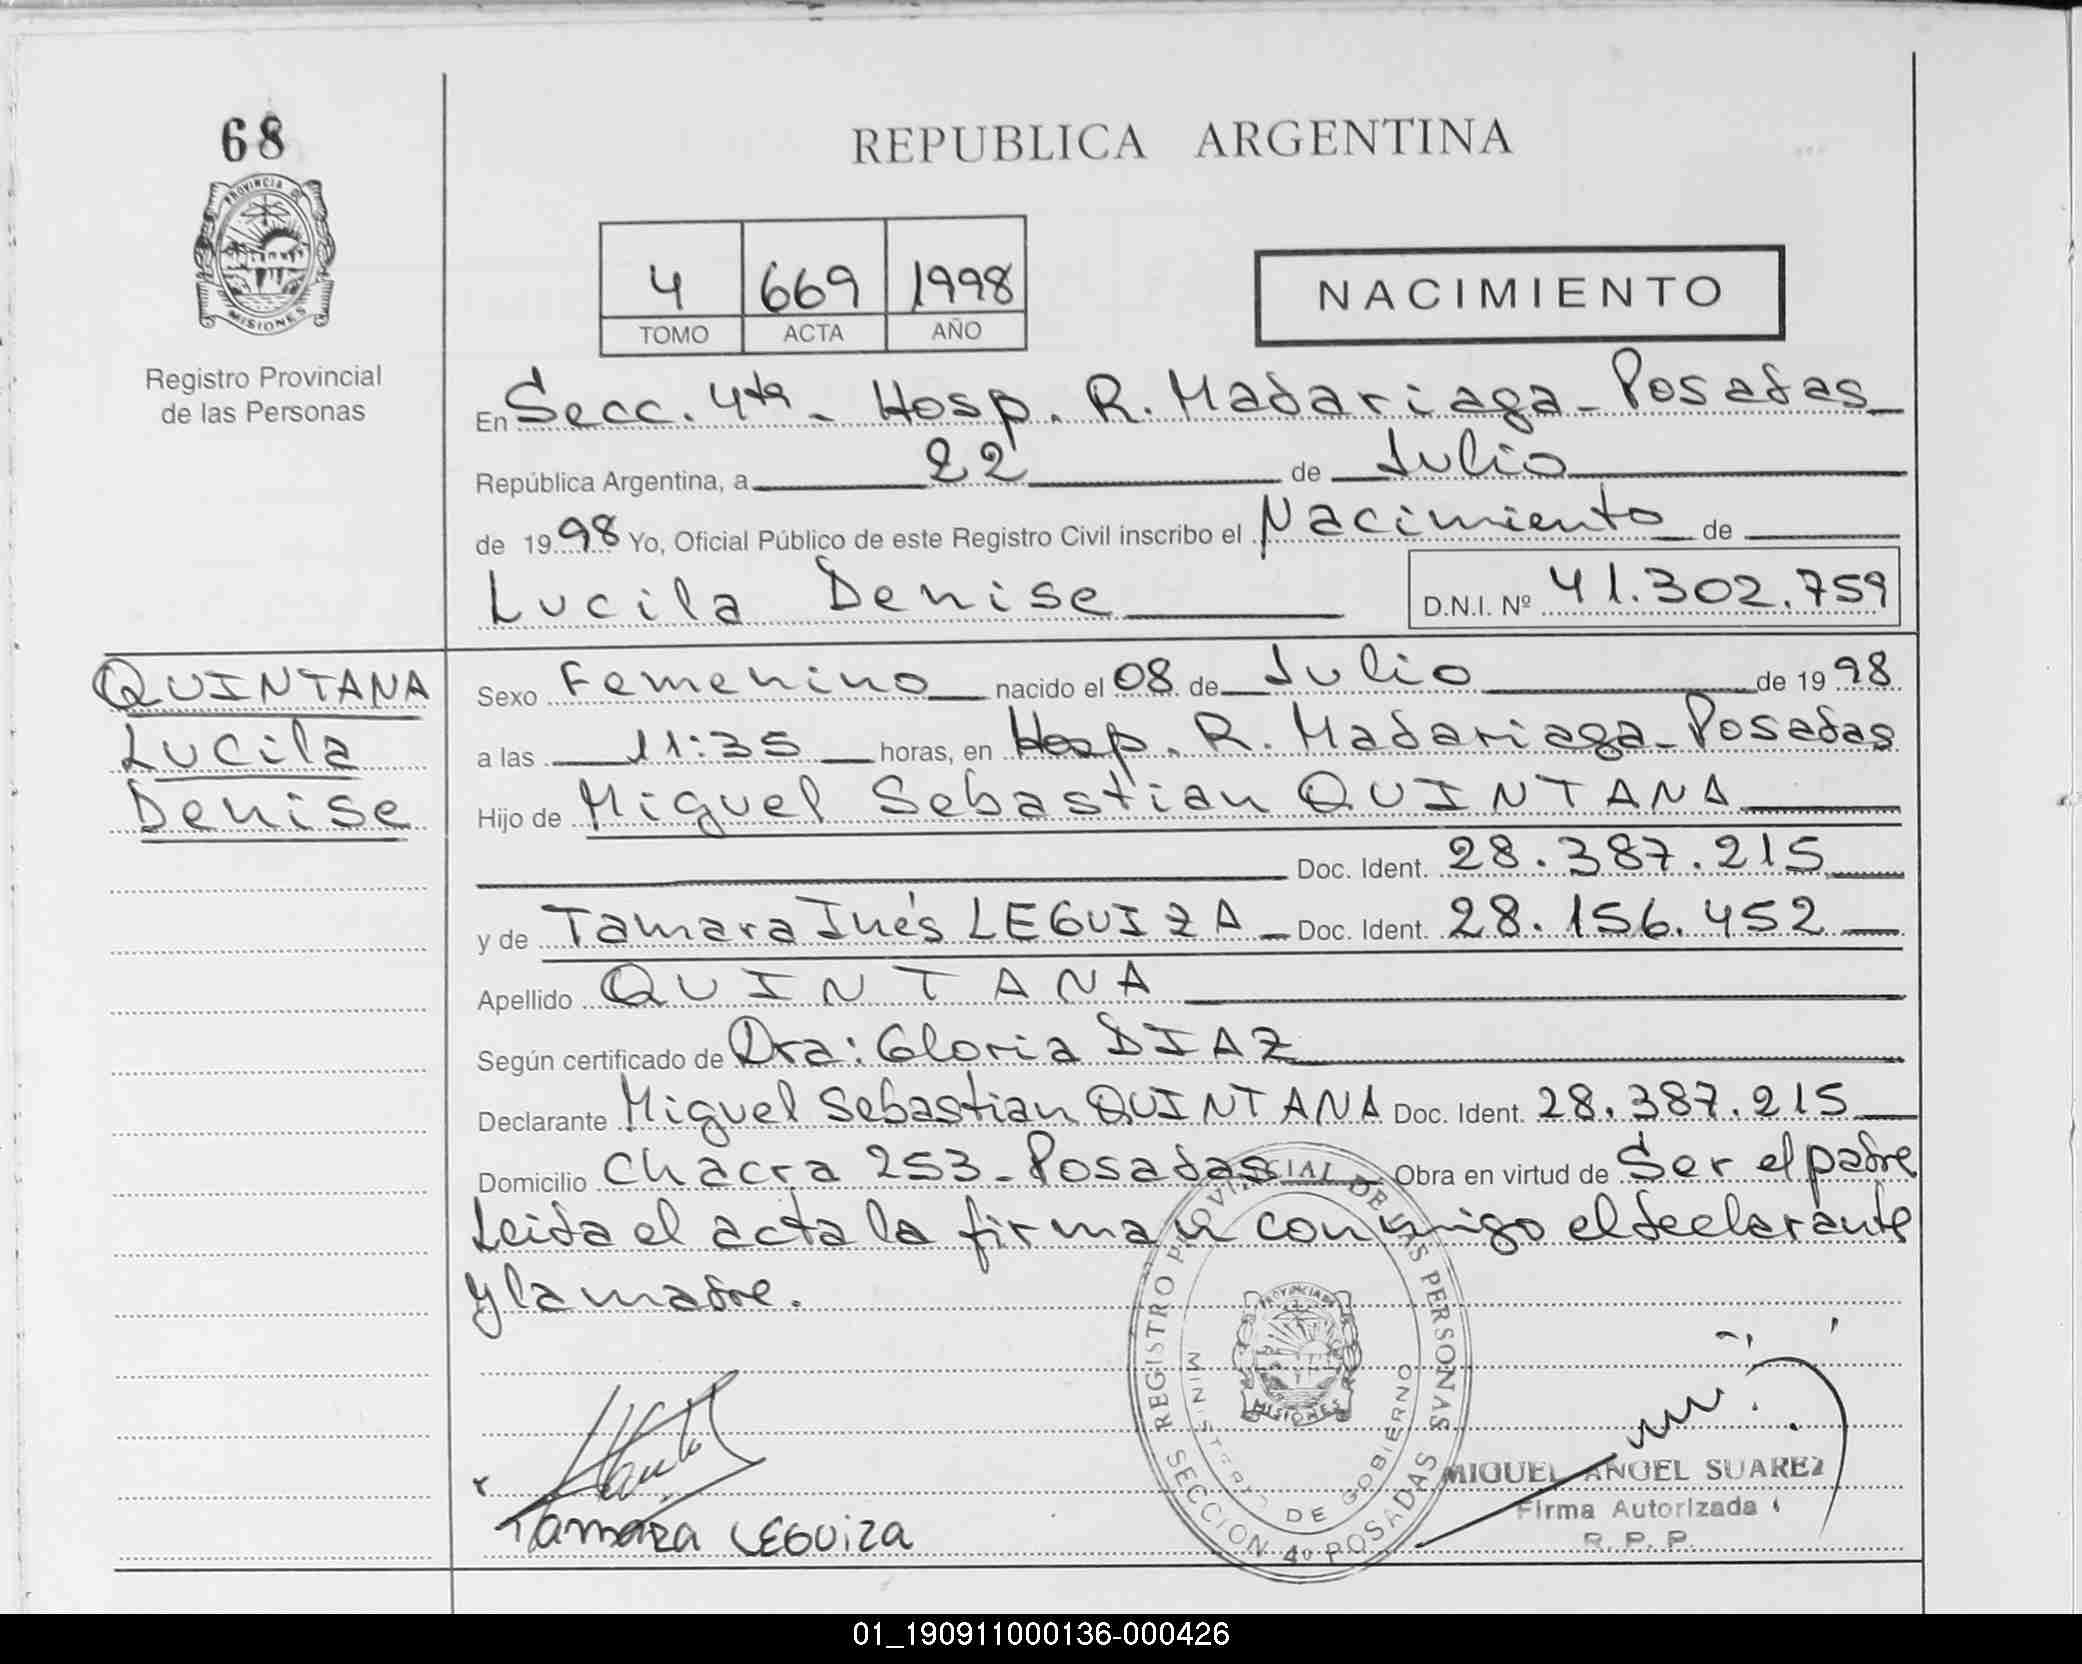 68
PROVINCIA DE
MISIONES
Registro Provincial
de las Personas
REPUBLICA ARGENTINA
4 669 1998
TOMO ACTA AÑO
NACIMIENTO
En Secc. 4ta - Hosp. R. Madariaga - Posadas
República Argentina, a 22 de Julio
de 1998 Yo, Oficial Público de este Registro Civil inscribo el Nacimiento de
Lucila Denise D.N.I. Nº 41.302.759
QUINTANA
Lucila
Denise
Sexo Femenino nacido el 08 de Julio de 1998
a las 11:35 horas, en Hosp. R. Madariaga - Posadas
Hijo de Miguel Sebastian QUINTANA
Doc. Ident. 28.387.215
y de Tamara Inés LEGUIZA Doc. Ident. 28.156.452
Apellido QUINTANA
Según certificado de Dra: Gloria DIAZ
Declarante Miguel Sebastian QUINTANA Doc. Ident. 28.387.215
Domicilio Chacra 253 - Posadas Obra en virtud de Ser el padre
Leida el acta la firman conmigo el declarante
y la madre.
REGISTRO PROVINCIAL DE LAS PERSONAS
MINISTERIO DE GOBIERNO
PROVINCIA DE
MISIONES
SECCION 4º POSADAS
TAMARA LEGUIZA
MIGUEL ANGEL SUAREZ
Firma Autorizada
R. P. P.
01_190911000136-000426